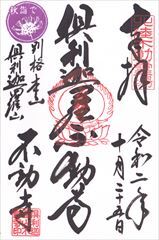 奉拝
令和二年
十月二十五日
倶利迦羅不動寺
別格本山
倶利迦羅山
不動寺
秋詣で